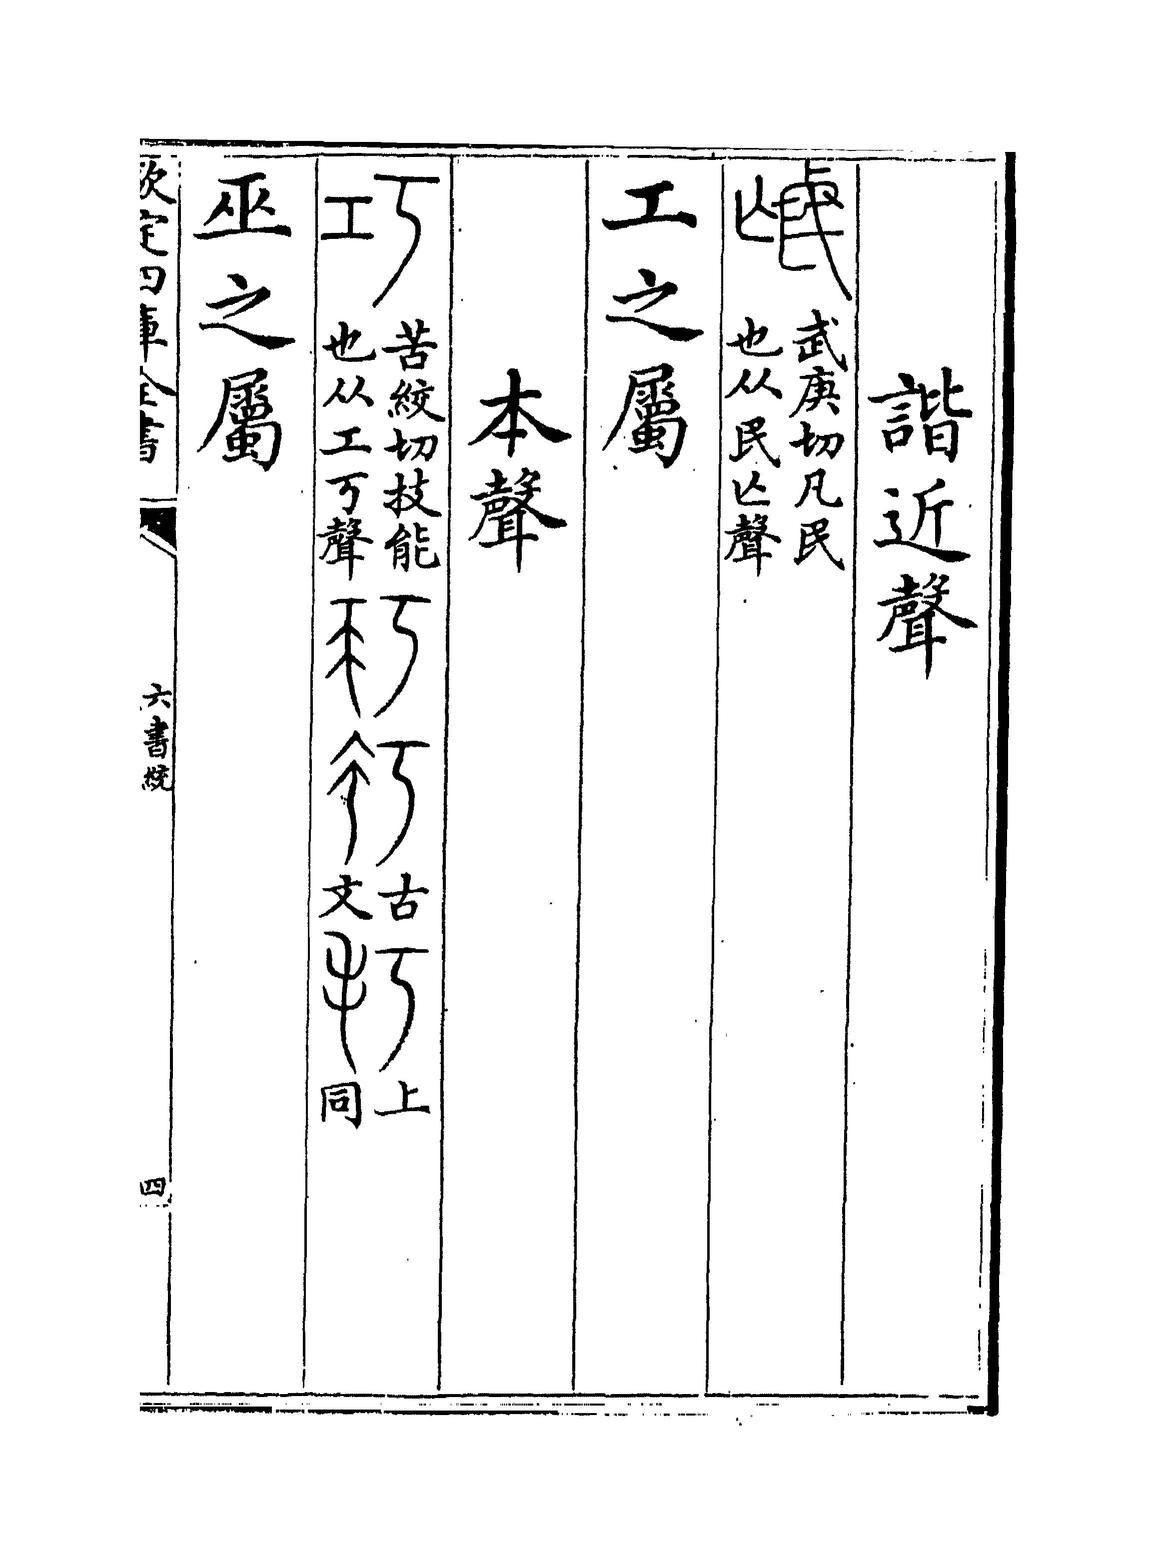 諧近聲
氓 武庚切凡民也从民亾聲
工之屬
本聲
巧 苦絞切技能也从工丂聲 古文 上同
巫之屬
欽定四庫全書 六書統 四